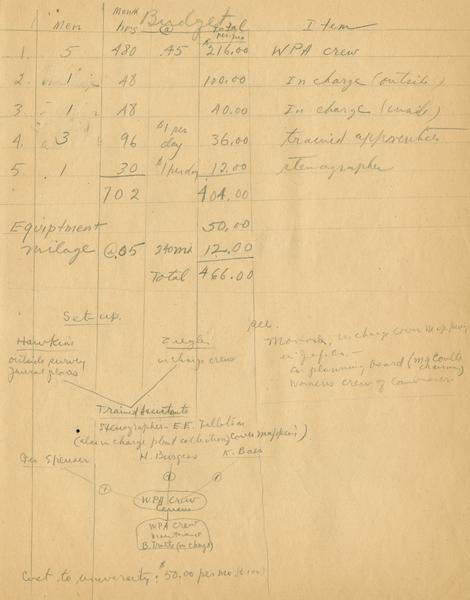 Budget
Men Month hrs @ Total per mo Item
1. 5 480 .45 $216.00 WPA crew
2. 1 48 100.00 In charge (outside)
3. 1 48 40.00 In charge (inside)
4. 3 96 $1 per day 36.00 trained apprentices
5. 1 30 $1 per day 12.00 stenographer
702 404.00
Equiptment 50.00
Milage @.05 240 mi 12.00
Total 466.00
Set up.
Hawkins Ziegler
outside survey in charge crews
faunal plots
in charge cover mapping
planning board
Womens crew of
Trained Assistants
Stenographer - E.E. Tillotson
(also in charge plant collection, cover mapping)
Spenser H. Burgess K. Bass
WPA crew
Census
WPA crew
B. Trotts (in charge)
Cost to university: $50.00 per mo